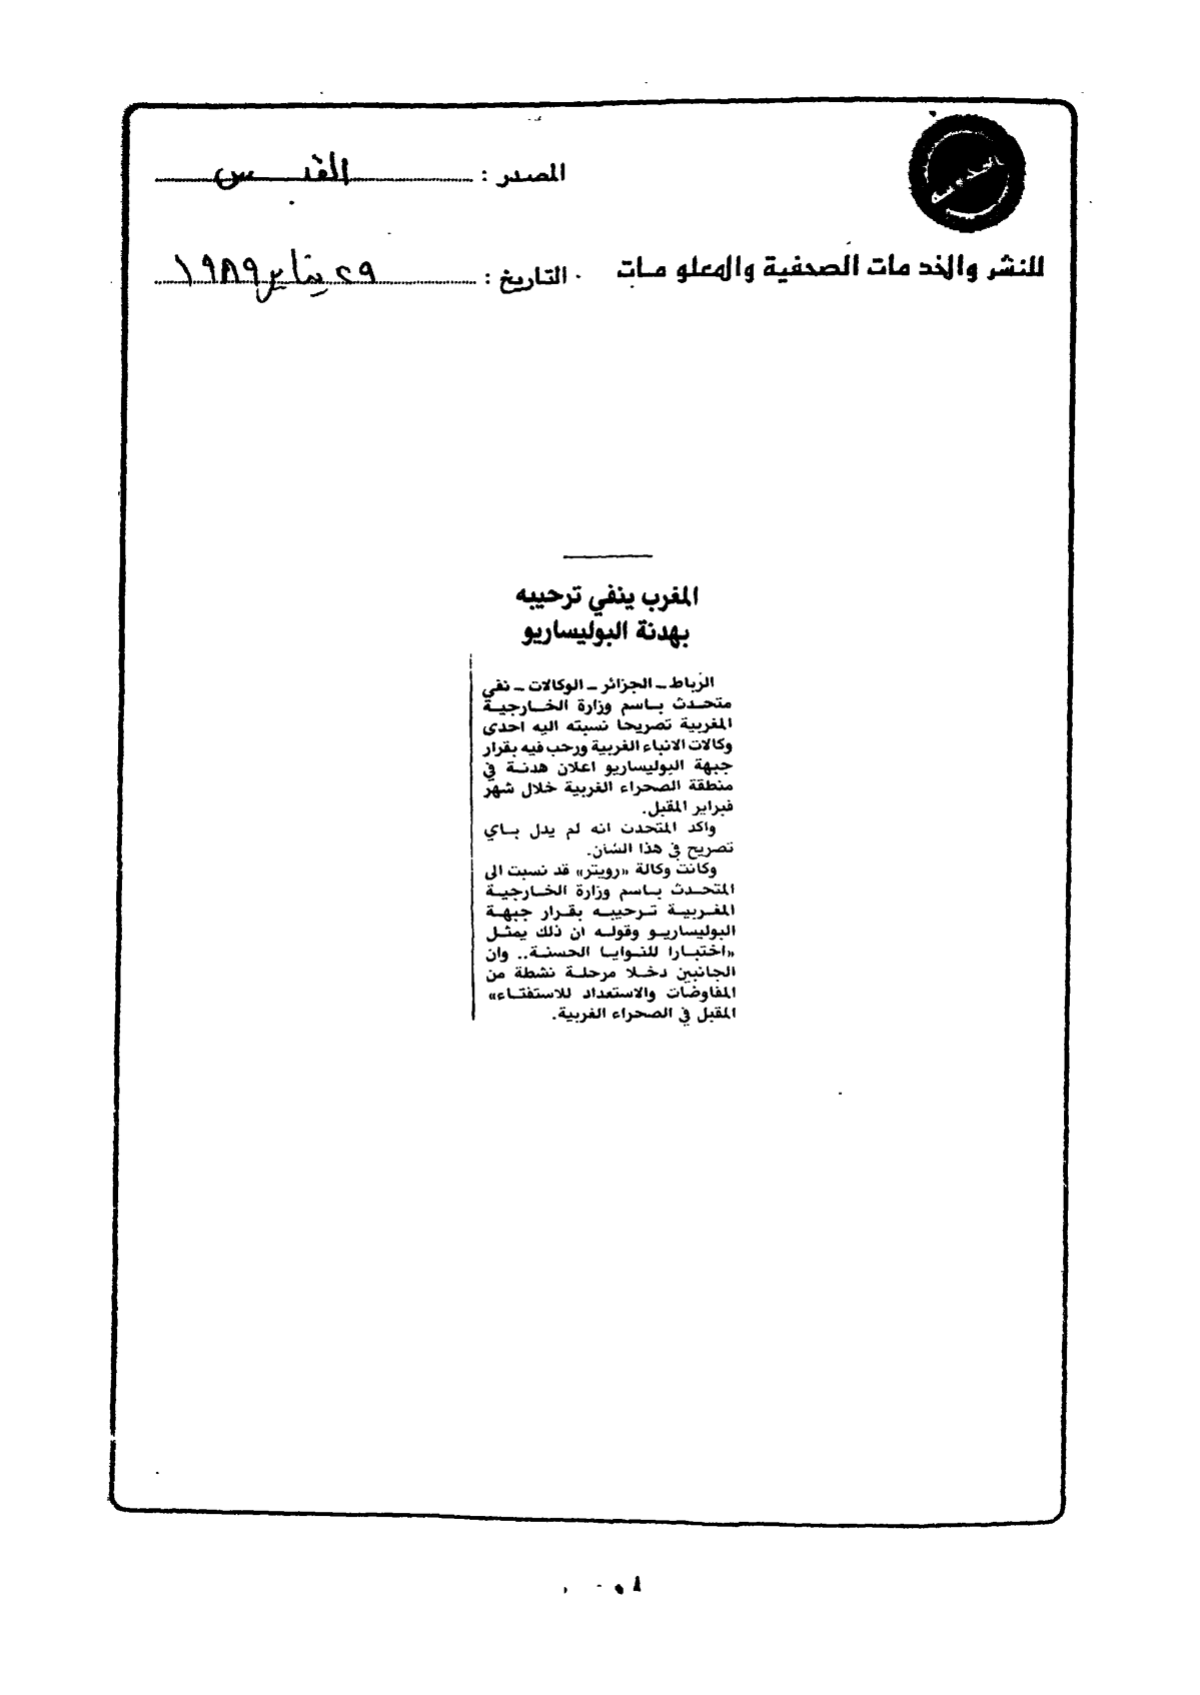 المصدر : القبس
للنشر والخدمات الصحفية والمعلومات
التاريخ : ٢٩ يناير ١٩٨٩
المغرب ينفي ترحيبه
بهدنة البوليساريو
الرباط ــ الجزائر ــ الوكالات ــ نفي
متحدث باسم وزارة الخارجية
المغربية تصريحا نسبته اليه احدى
وكالات الانباء الغربية ورحب فيه بقرار
جبهة البوليساريو اعلان هدنة في
منطقة الصحراء الغربية خلال شهر
فبراير المقبل.
واكد المتحدث انه لم يدل باي
تصريح في هذا الشأن.
وكانت وكالة «رويتر» قد نسبت الى
المتحدث باسم وزارة الخارجية
المغربية ترحيبه بقرار جبهة
البوليساريو وقوله ان ذلك يمثل
«اختبارا للنوايا الحسنة.. وان
الجانبين دخلا مرحلة نشطة من
المفاوضات والاستعداد للاستفتاء»
المقبل في الصحراء الغربية.